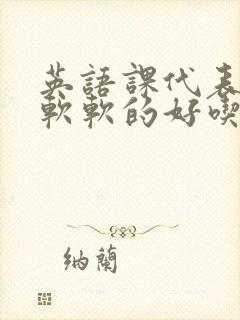 英語課代表
軟軟的好喫
納蘭